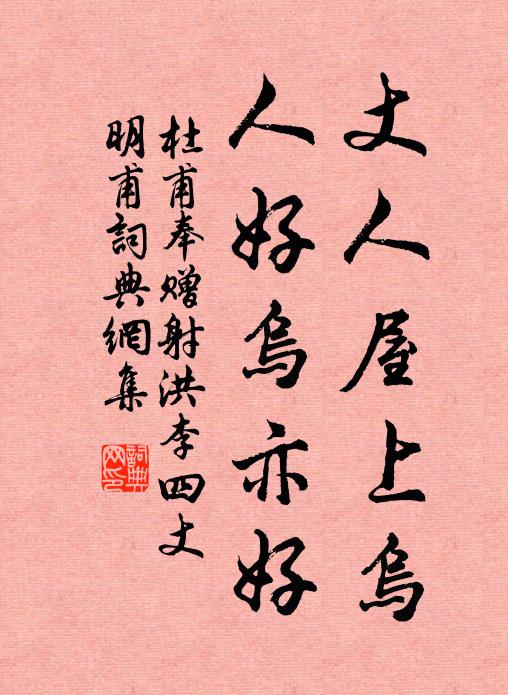 丈人屋上烏
人好烏亦好
杜甫奉赠射洪李四丈
明甫詞典網集
詞典网印